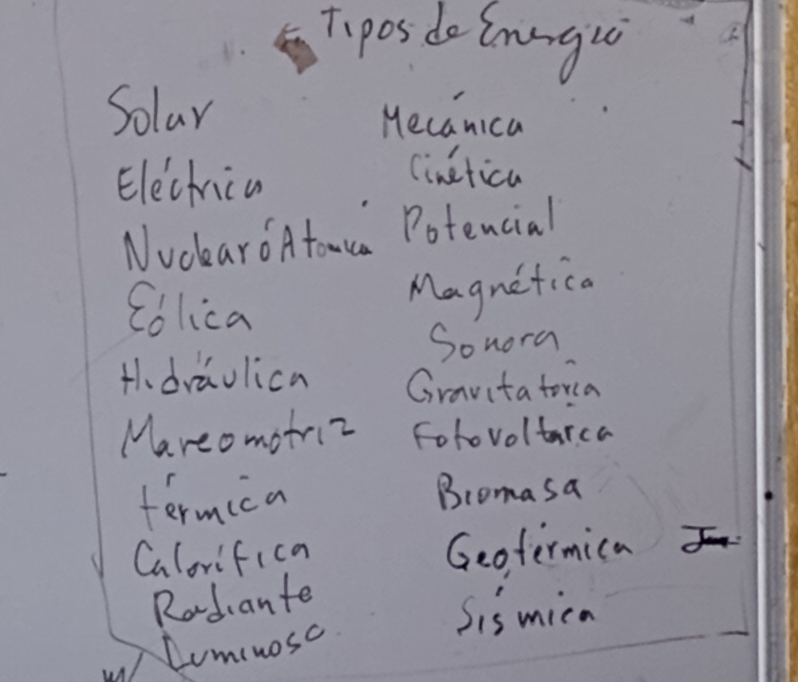 Tipos de Energía
Solar
Eléctrica
Nuclear ó Atomica
Eólica
Hidráulica
Mareomotriz
térmica
Calorífica
Radiante
Luminosa
Mecánica
Cinética
Potencial
Magnética
Sonora
Gravitatoria
Fotovoltaica
Biomasa
Geotérmica
Sísmica